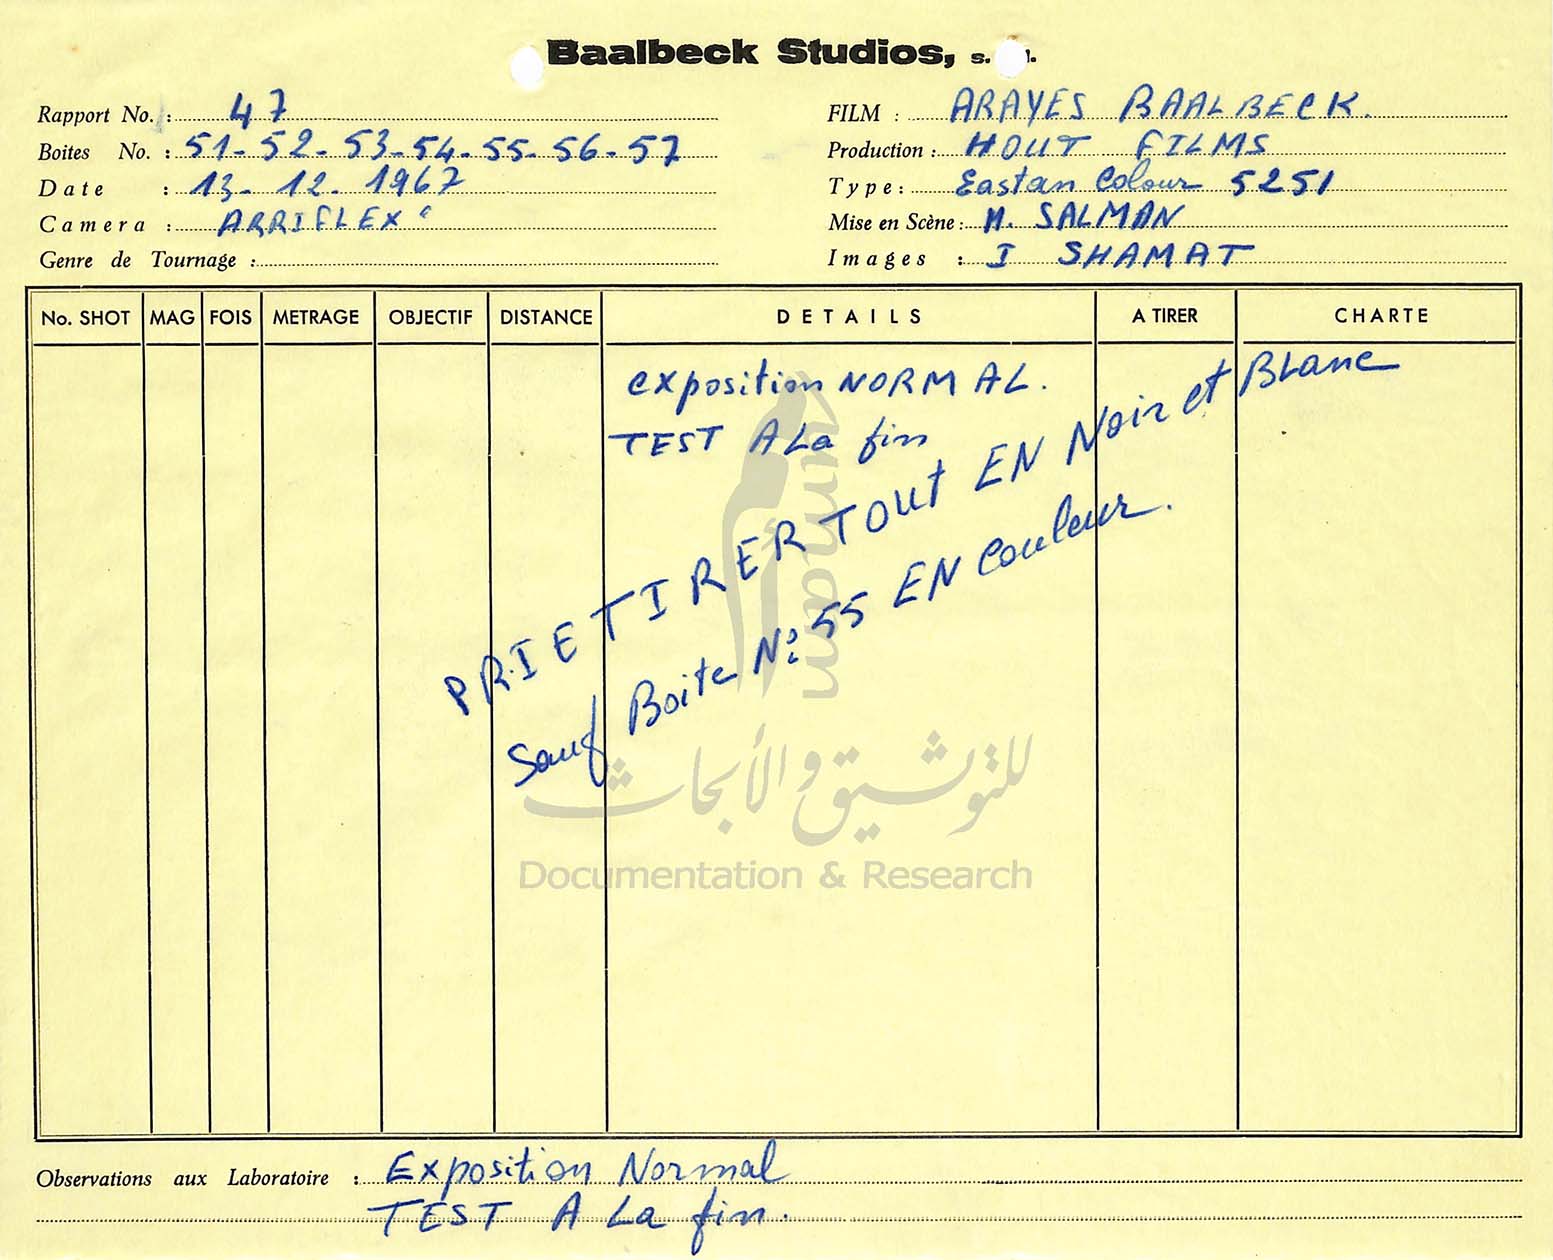 Baalbeck Studios, s.
Rapport No. : 47
Boites No. : 51-52-53-54-55-56-57
Date : 13-12-1967
Camera : ARRIFLEX
Genre de Tournage :
FILM : ARAYES BAALBECK.
Production : HOUT FILMS
Type : Eastan Colour 5251
Mise en Scène : M. SALMAN
Images : I SHAMAT
No. SHOT MAG FOIS METRAGE OBJECTIF DISTANCE DETAILS A TIRER CHARTE
exposition NORMAL.
TEST A La fin
PRIE TIRER TOUT EN Noir et BLanc
Sauf Boite No: 55 EN Couleur.
umam
للتوثيق والأبحاث
Documentation & Research
Observations aux Laboratoire : Exposition Normal
TEST A La fin.